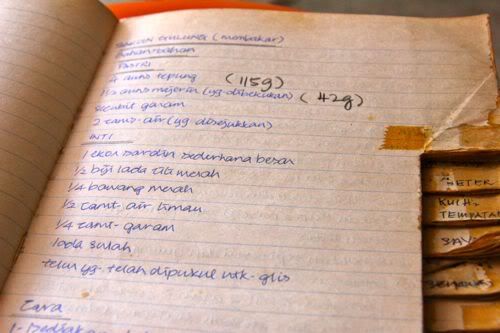 SARDIN GULUNG (membakar)
Bahan-bahan
PASTRI
4 auns tepung (115g)
1 1/2 auns majerin (yg. dibekukan) (42g)
secubit garam
2 camb. air (yg disejukkan)
INTI
1 ekor sardin sederhana besar
1/2 biji lada titi merah
1/4 bawang merah
1/2 camt. air limau
1/4 camt. garam
lada sulah
telur yg. telah dipukul utk. glis
Cara
1-
KUIH
TEMPATAN